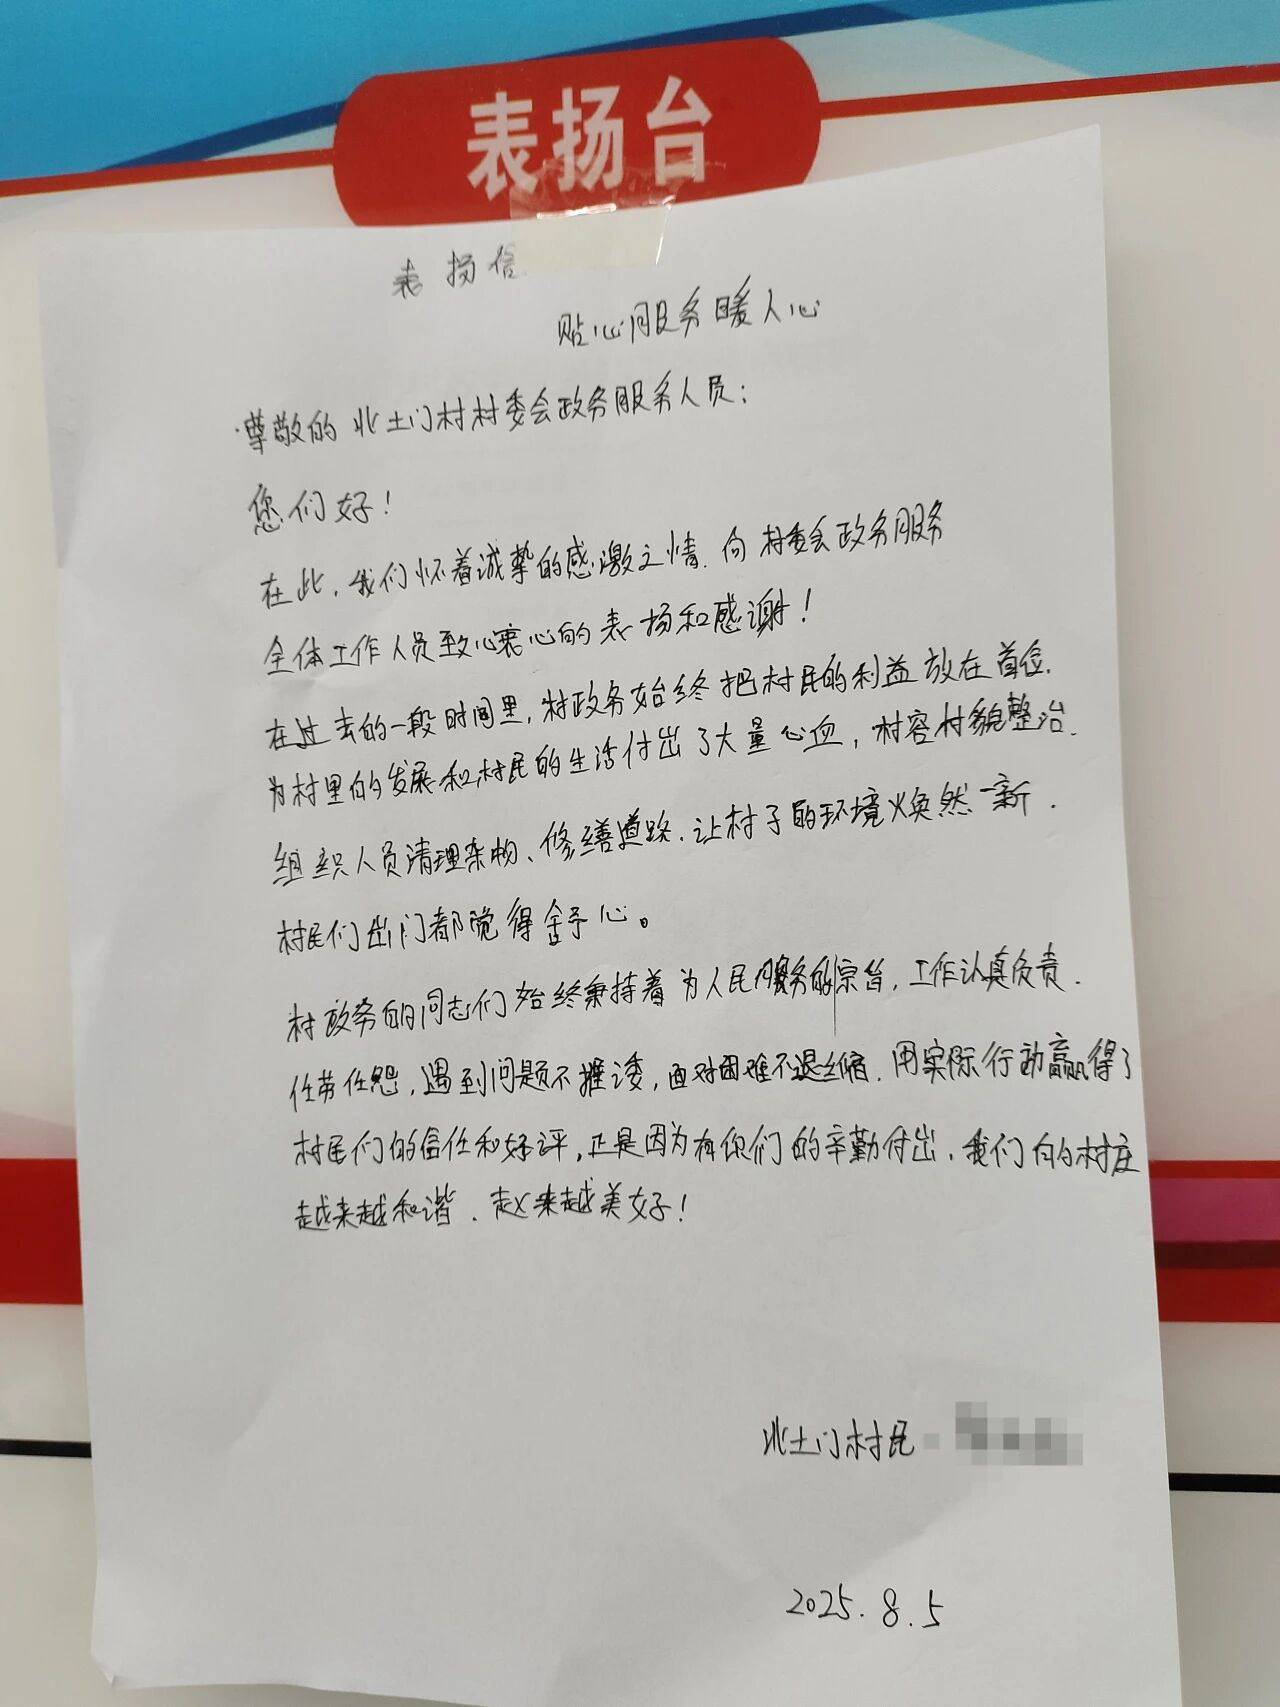 表扬台
表扬信
贴心服务暖人心
尊敬的北土门村村委会政务服务人员：
您们好！
在此，我们怀着诚挚的感激之情，向村委会政务服务
全体工作人员致心衷心的表扬和感谢！
在过去的一段时间里，村政务始终把村民的利益放在首位，
为村里的发展和村民的生活付出了大量心血，村容村貌整治，
组织人员清理杂物、修缮道路，让村子的环境焕然一新，
村民们出门都觉得舒心。
村政务的同志们始终秉持着为人民服务的宗旨，工作认真负责，
任劳任怨，遇到问题不推诿，面对困难不退缩，用实际行动赢得了
村民们的信任和好评，正是因为有你们的辛勤付出，我们的村庄
越来越和谐，越来越美好！
北土门村民
2025.8.5